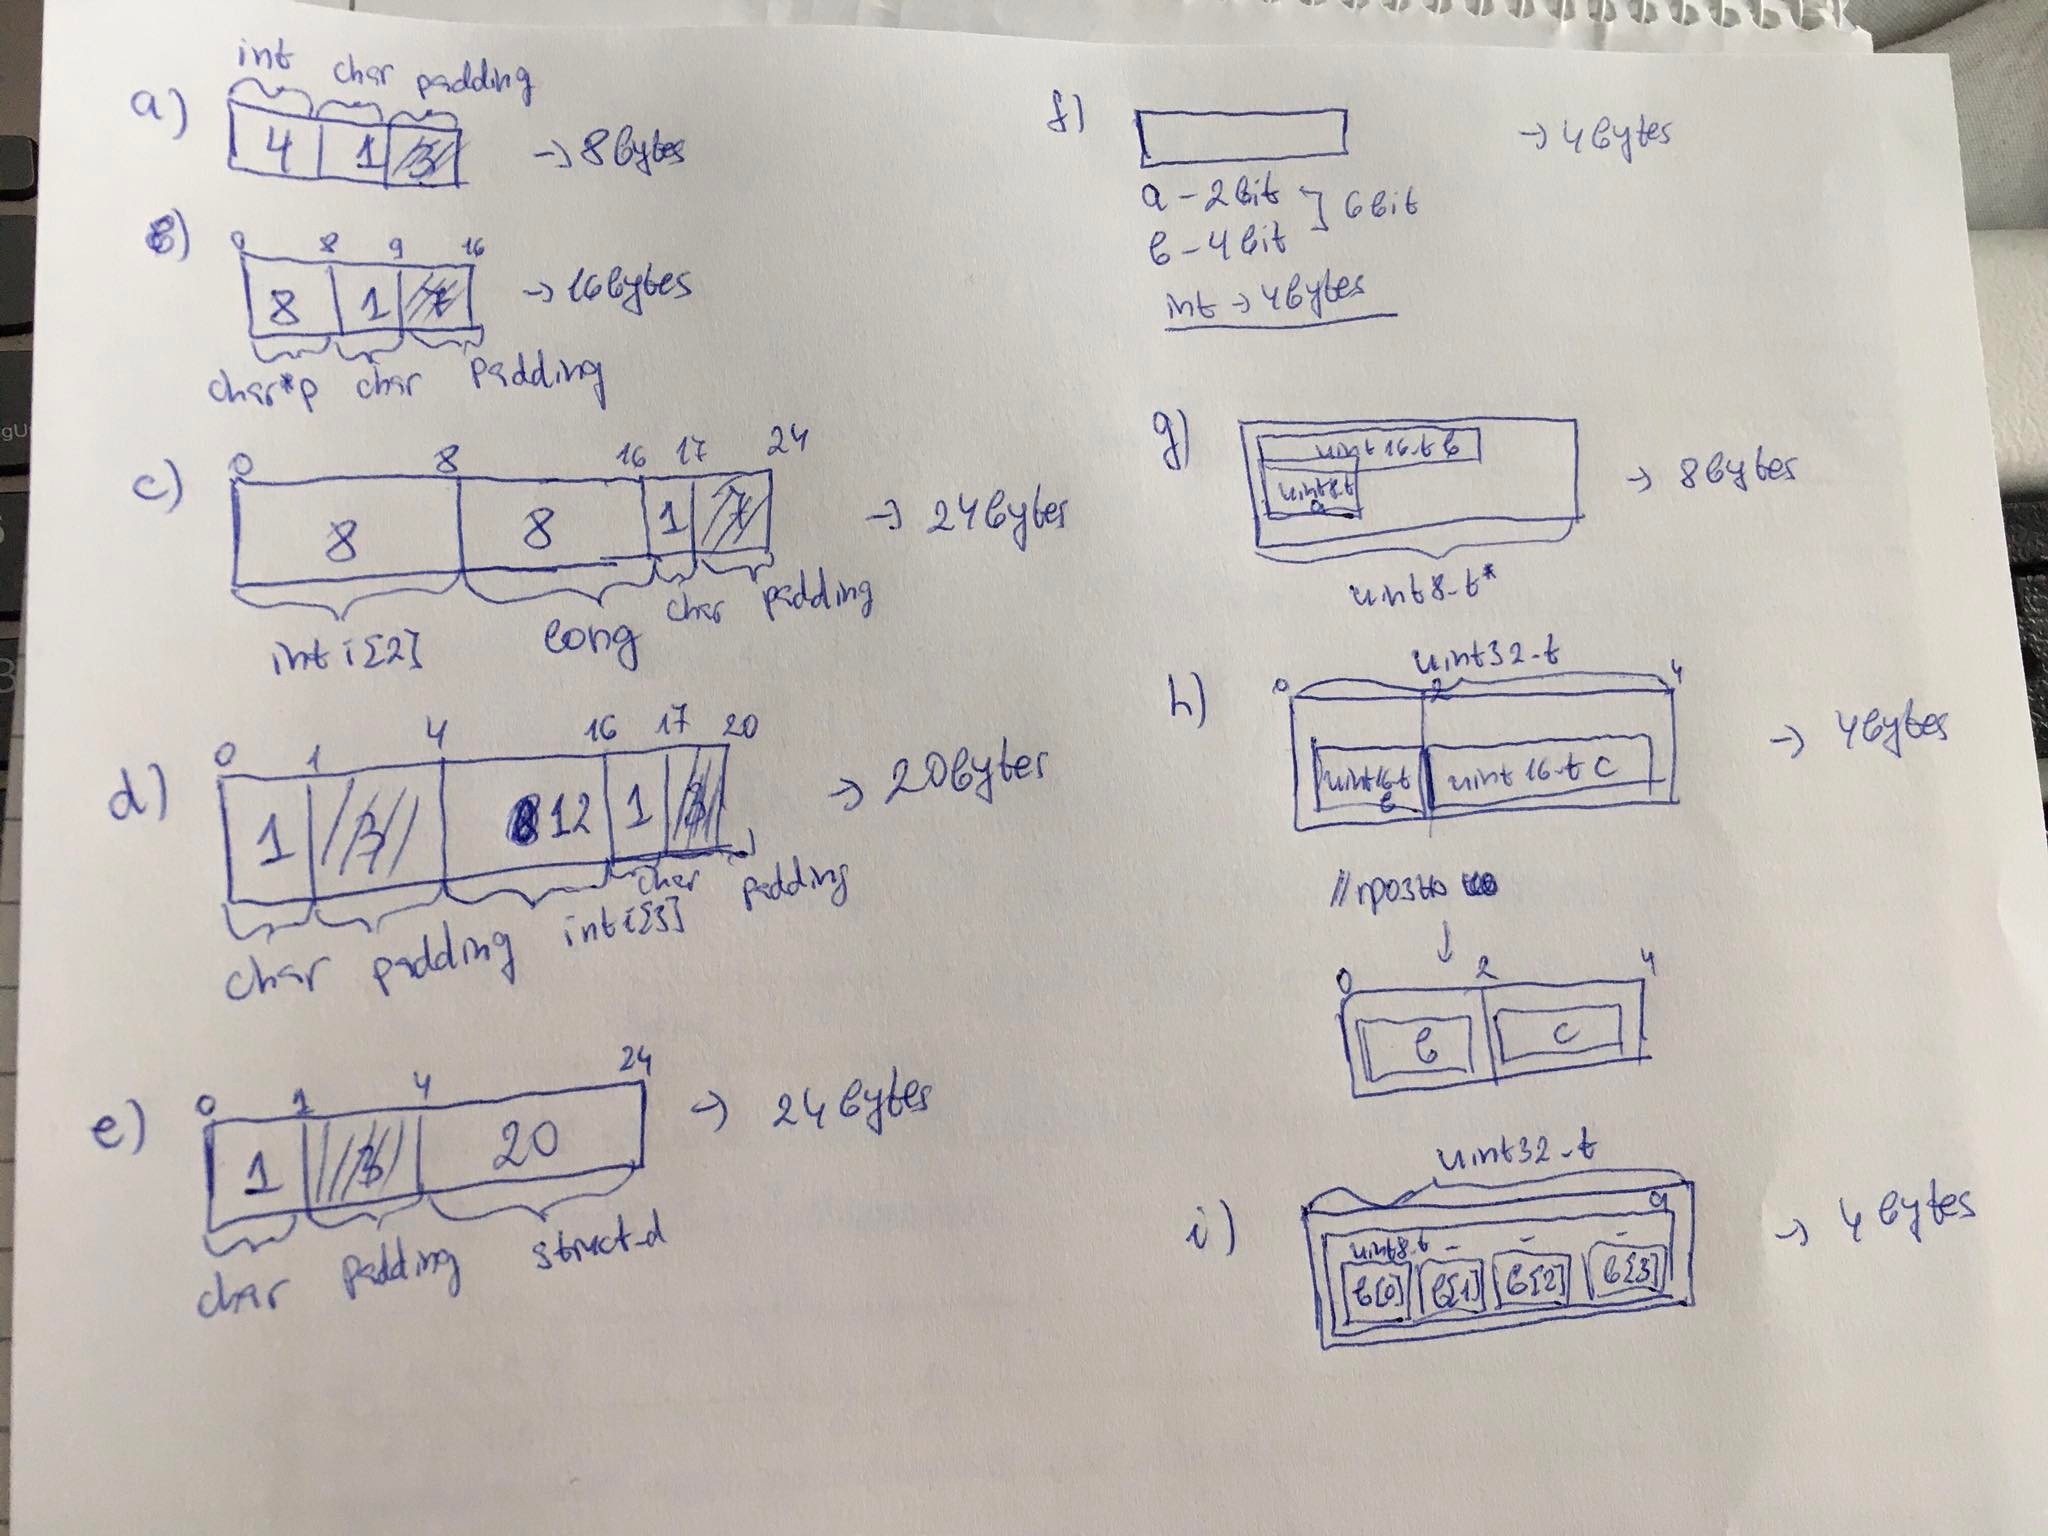 a)
int char padding
4 1 3
→ 8 bytes
b)
0 8 9 16
8 1 7
→ 16 bytes
char*p char padding
c)
0 8 16 17 24
8 8 1 7
→ 24 bytes
int i[2] long char padding
d)
0 1 4 16 17 20
1 3 12 1 3
→ 20 bytes
char padding int i[3] char padding
e)
0 1 4 24
1 3 20
→ 24 bytes
char padding struct-d
f)
→ 4 bytes
a - 2 bit
b - 4 bit
] 6 bit
int → 4 bytes
g)
uint16_t b
uint8_t
a
→ 8 bytes
uint8_t*
h)
uint32_t
0 2 4
uint16_t
b
uint16_t c
→ 4 bytes
//
↓
0 2 4
b c
i)
uint32_t
uint8_t - - -
b[0] b[1] b[2] b[3]
→ 4 bytes